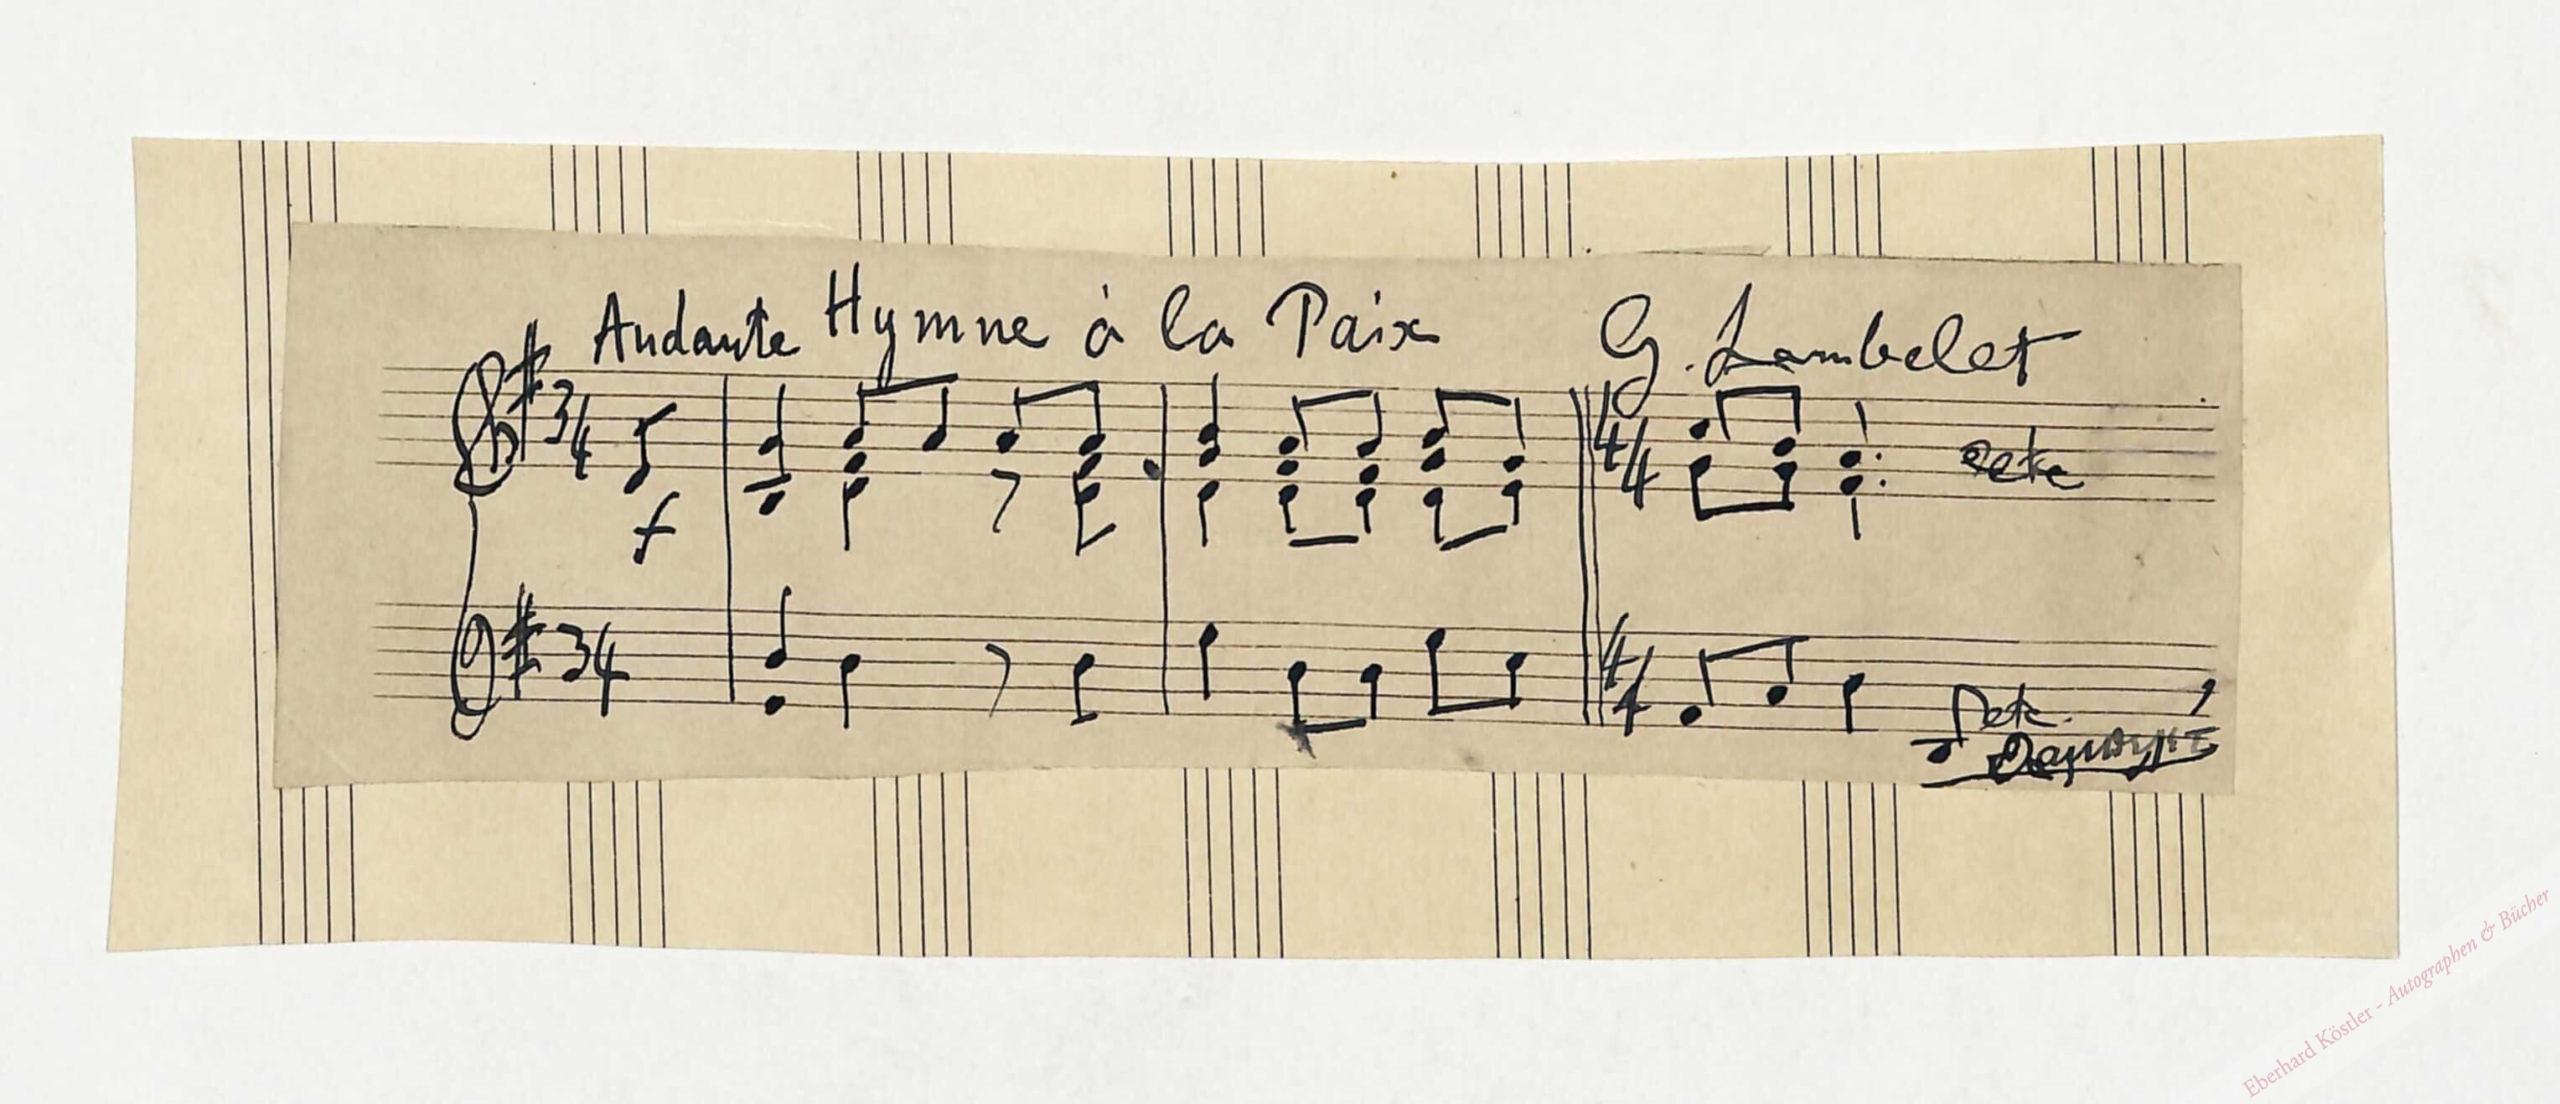 Andante Hymne à la Paix G. Lambelet
3/4
f
4/4
etc
3/4
4/4
etc.
Eberhard Köstler - Autographen & Bücher